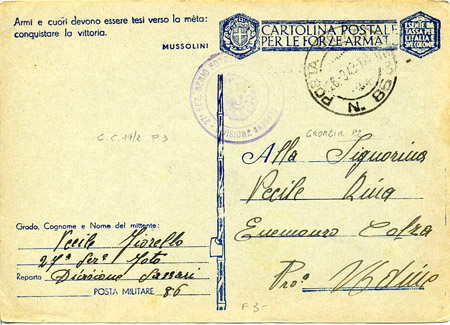 Armi e cuori devono essere tesi verso la mèta:
conquistare la vittoria.
MUSSOLINI
CARTOLINA POSTALE
PER LE FORZE ARMATE
ESENTE DA
TASSA PER
L'ITALIA
E SUE COLONIE
POSTA
N. 86
C.C. 19/2 F3
Alla Signorina
Vecile Dina
Enemonzo
Pro: Udine
Grado, Cognome e Nome del mittente:
Vecile Fiorello
27ª Sez. Foto
Reparto Divisione Sassari
POSTA MILITARE 86
F3-